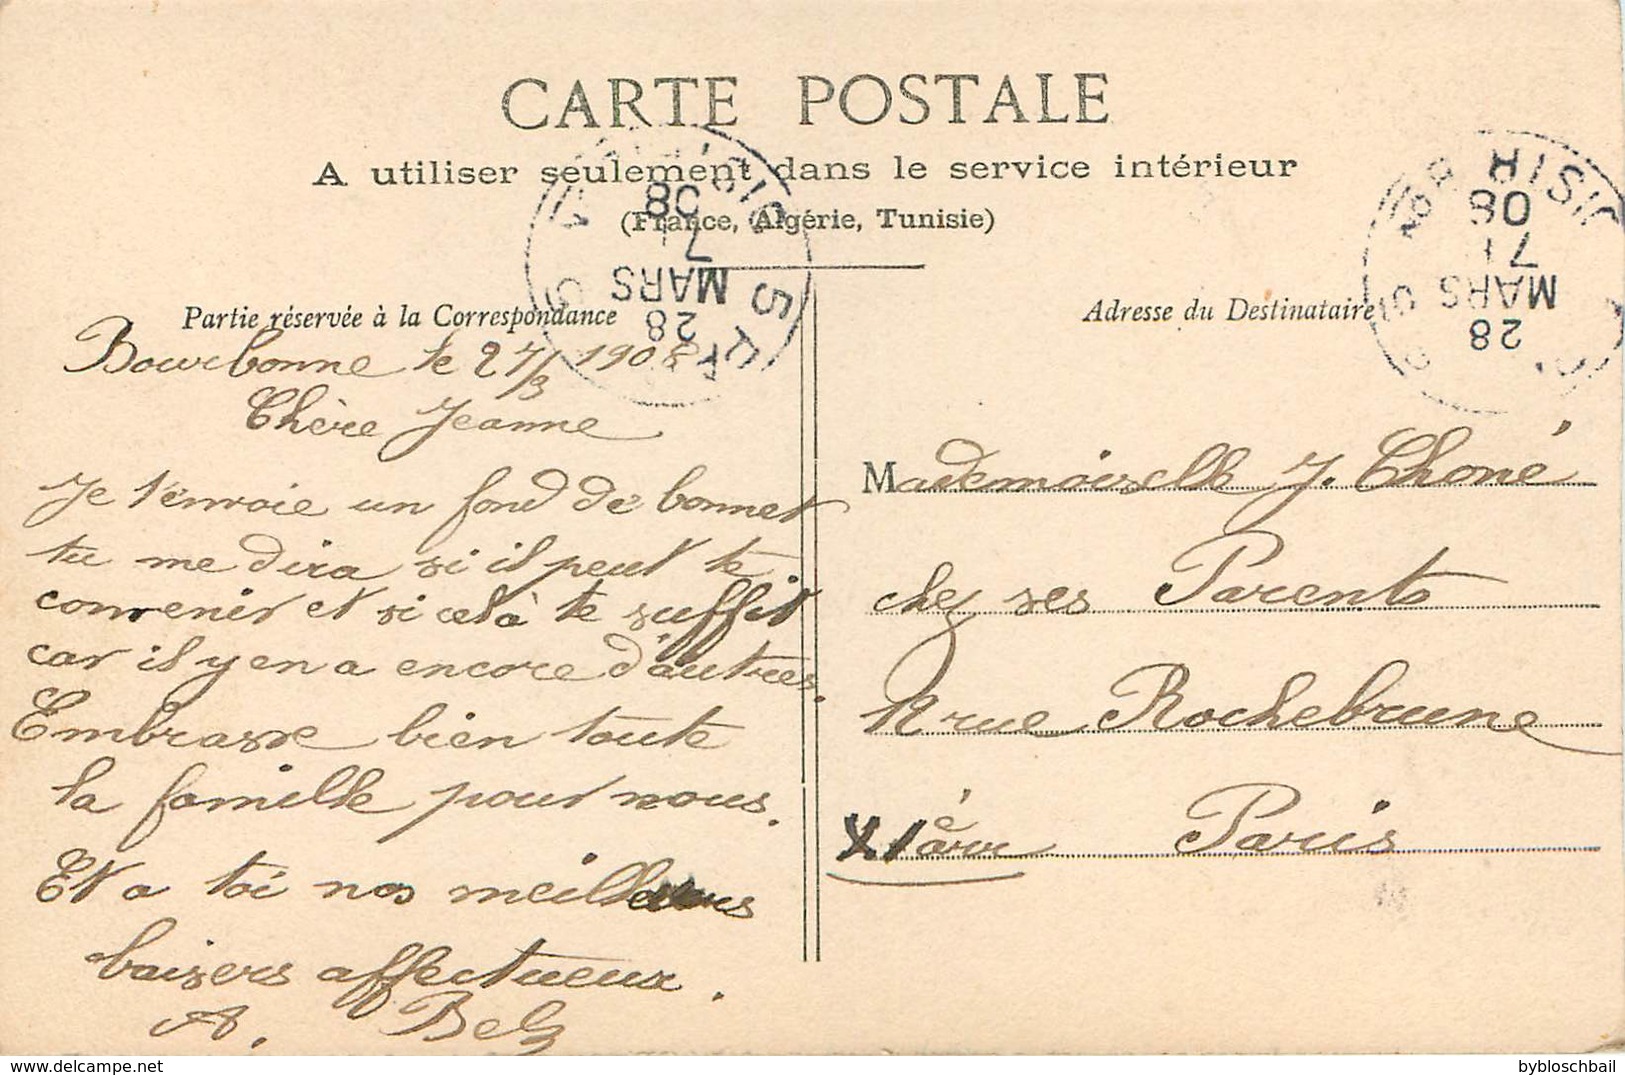 CARTE POSTALE
A utiliser seulement dans le service intérieur
(France, Algérie, Tunisie)
Partie réservée à la Correspondance
Bourbonne le 27/3 1908
Chère Jeanne
Je t'envoie un fond de bonnet
tu me dira si il peut te
convenir et si celà te suffit
car il y en a encore d'autres.
Embrasse bien toute
la famille pour nous.
Et a toi nos meilleurs
baisers affectueux.
A. Belz
Adresse du Destinataire
Mademoiselle J. Choné
chez ses Parents
rue Rochebrune
XIè arr Paris
28
MARS
08
28
MARS
08
delcampe.net
bybloschbail